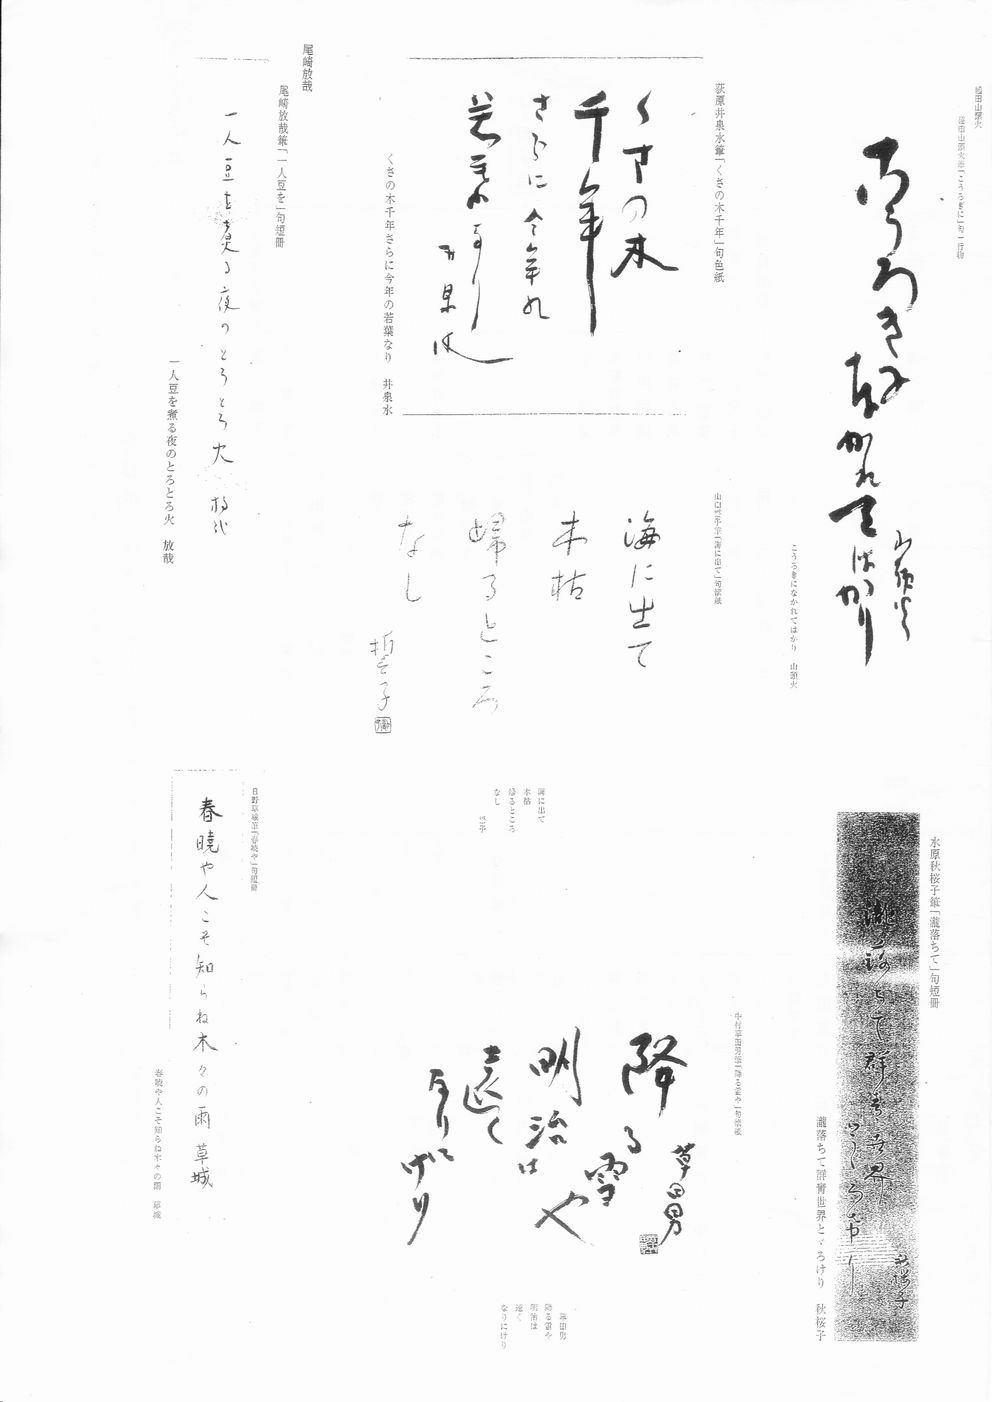 種田山頭火
種田山頭火筆「こうろぎに」句一行物
こうろぎになかれてばかり
山頭火
こうろぎになかれてばかり 山頭火
荻原井泉水筆「くさの木千年」句色紙
くさの木
千年
さらに今年の
若葉なり
井泉水
くさの木千年さらに今年の若葉なり 井泉水
尾崎放哉
尾崎放哉筆「一人豆を」句短冊
一人豆を煮る夜のとろとろ火 放哉
一人豆を煮る夜のとろとろ火 放哉
山口誓子筆「海に出て」句懐紙
海に出て
木枯
帰るところ
なし
誓子
海に出て
木枯
帰るところ
なし
誓子
水原秋桜子筆「瀧落ちて」句短冊
瀧落ちて群青世界
とゞろけり
秋桜子
瀧落ちて群青世界とゞろけり 秋桜子
中村草田男筆「降る雪や」句懐紙
草田男
降る雪や
明治は
遠く
なりに
けり
草田男
降る雪や
明治は
遠く
なりにけり
日野草城筆「春暁や」句短冊
春暁や人こそ知らね木々の雨 草城
春暁や人こそ知らね木々の雨 草城